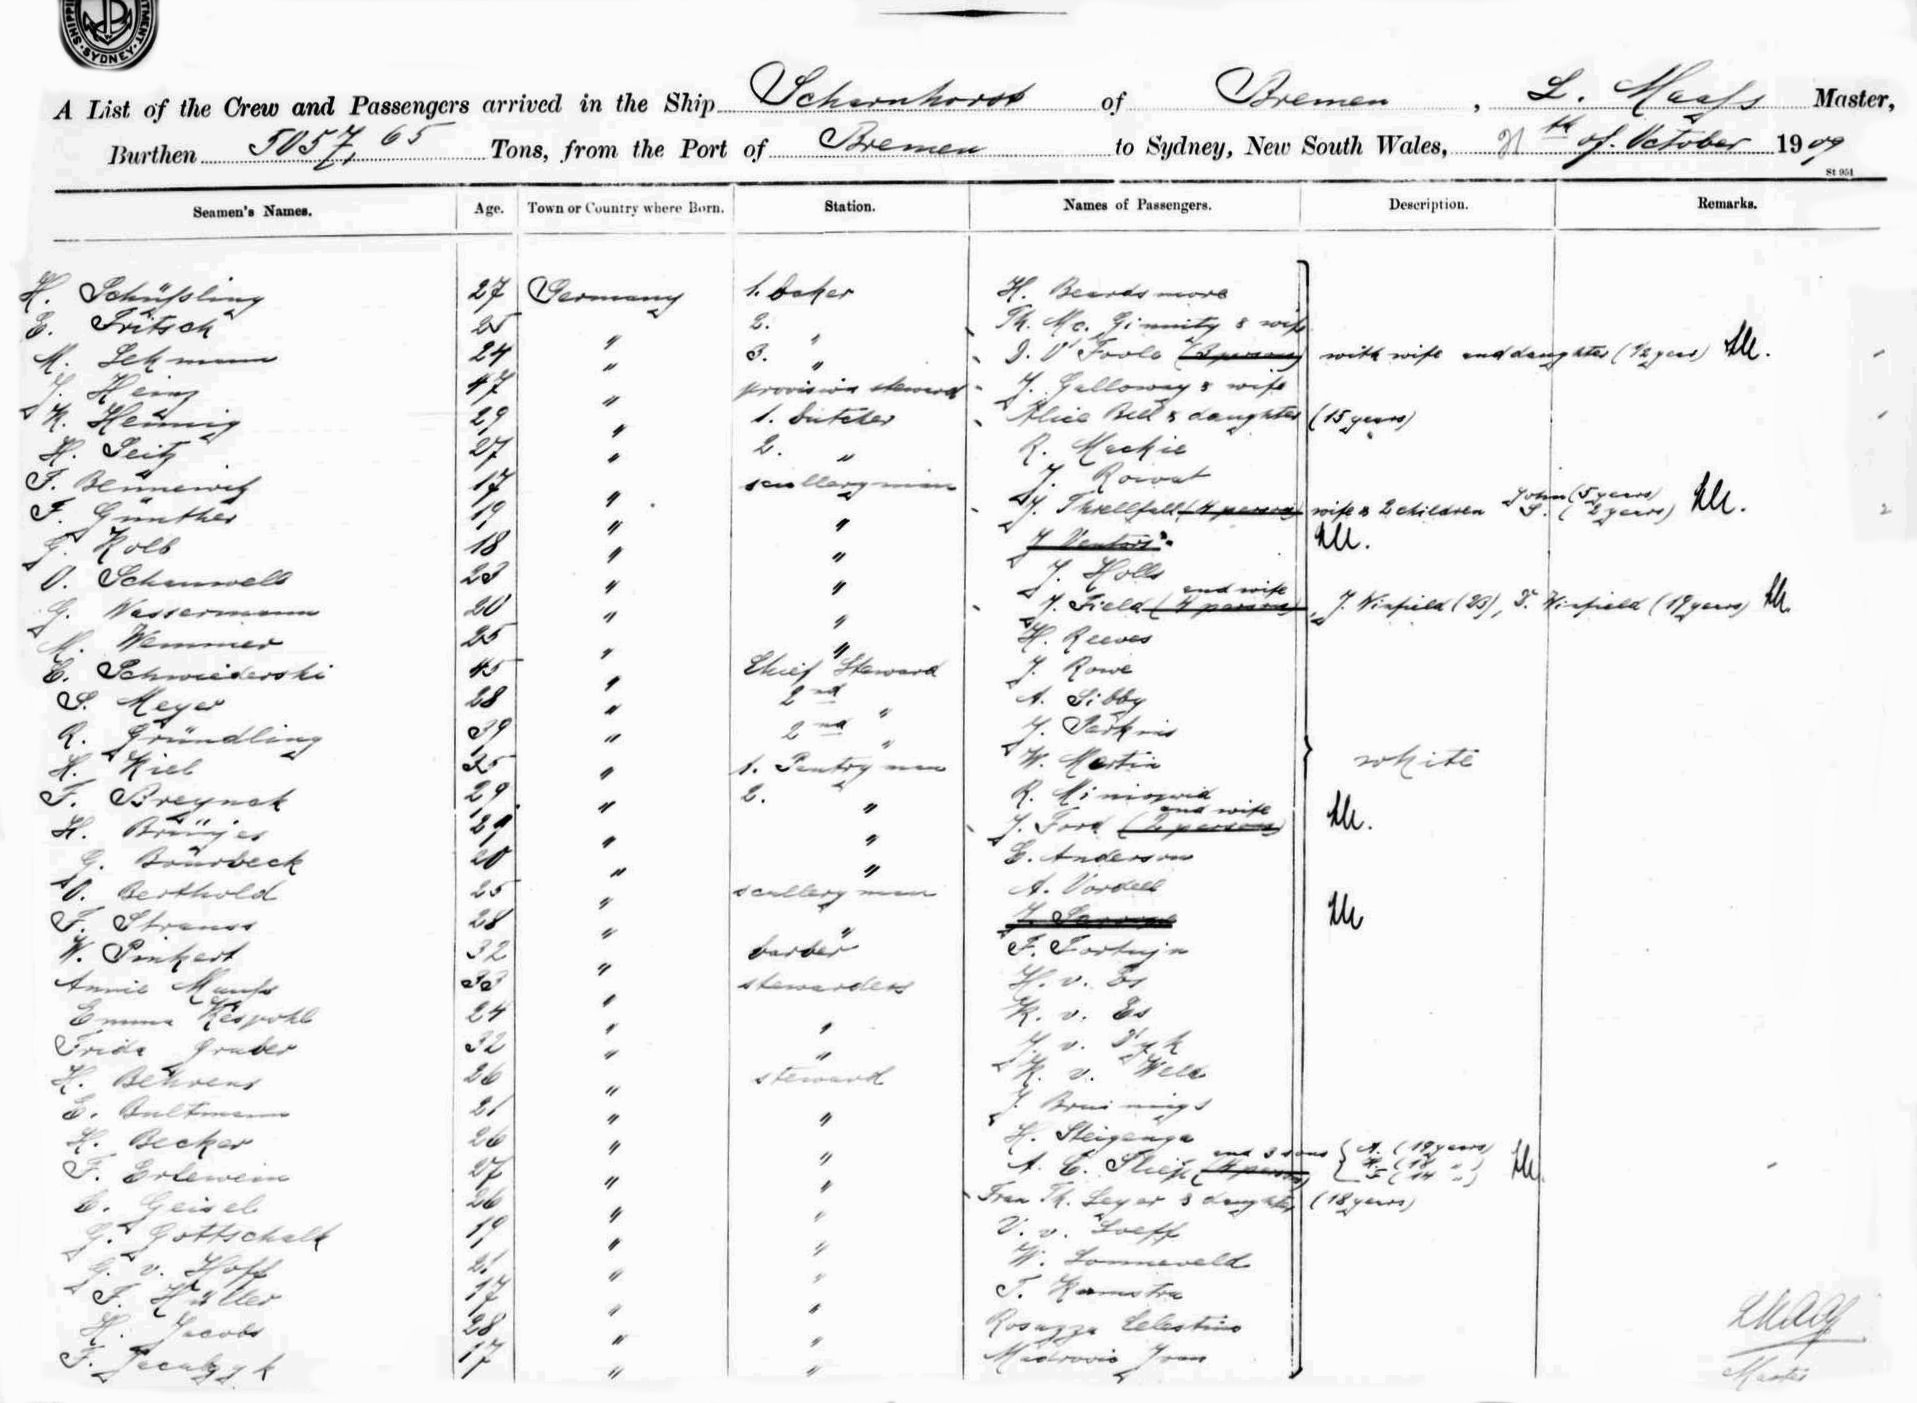 SYDNEY
A List of the Crew and Passengers arrived in the Ship Scharnhorst of Bremen, L. Maaß Master,
Burthen 5057,65 Tons, from the Port of Bremen to Sydney, New South Wales, 21th of October 1909
St 951
Seamen's Names. Age. Town or Country where Born. Station. Names of Passengers. Description. Remarks.
H. Schüßling 27 Germany 1. baker H. Beardsmore
E. Fritsch 25 " 2. " Th. Mc. Ginnity & wife
M. Lehmann 24 " 3. " D. O'Toole (3 persons) with wife and daughter (1/2 year) LM.
J. Heinz 47 " provision steward J. Galloway & wife
K. Hennig 29 " 1. butcher Alice Bell & daughter (15 years)
H. Seitz 27 " 2. " R. Mackie
F. Bennewitz 17 " scullery man J. Rowat
F. Günther 19 " " J. Threllfall (4 persons) wife & 2 children John (5 years) S. (2 years) LM.
G. Kolb 18 " " J. Venters LM.
O. Schauwell 23 " " J. Holls
G. Wassermann 20 " " J. Field (4 persons) and wife J. Winfield (23), F. Winfield (19 years) LM.
M. Wemmer 25 " " H. Reeves
E. Schwiederski 45 " Chief Steward J. Rowe
S. Meyer 28 " 2nd " A. Libby
R. Gründling 39 " 2nd " J. Parkins
H. Kiel 25 " 1. Pantry man W. Martin white
F. Breynck 29 " 2. " R.
H. Brünjes 29 " " J. Ford (2 persons) and wife LM.
G. Bourbeck 20 " " E. Anderson
O. Berthold 25 " scullery man A. Vordell
F. Strauss 28 " " J. LM
W. Pinkert 32 " barber F. Fortuyn
Annie Maaß 33 " stewardess H. v. Es
Emma Kespohl 24 " " K. v. Es
Frida Gruber 32 " " J. v. Dyk
H. Behrens 26 " steward K. v. Weld
E. Bultmann 21 " " J. Bruinings
H. Becker 26 " " H. Steigenga
F. Erlewein 27 " " A. E. (4 persons) and 3 sons A. (19 years) (18 ") F (14 ") LM.
E. Geisel 26 " " Frau Th. Leyer & daughter (18 years)
G. Gottschalk 19 " " V. v. Loeff
G. v. Hoff 21 " " W. Lonneveld
F. Hüller 17 " " T. Kamstra
H. Jacobs 28 " " Rosazza Celestino
F. 17 " " Madrovic Ivan
LMaaß
Master